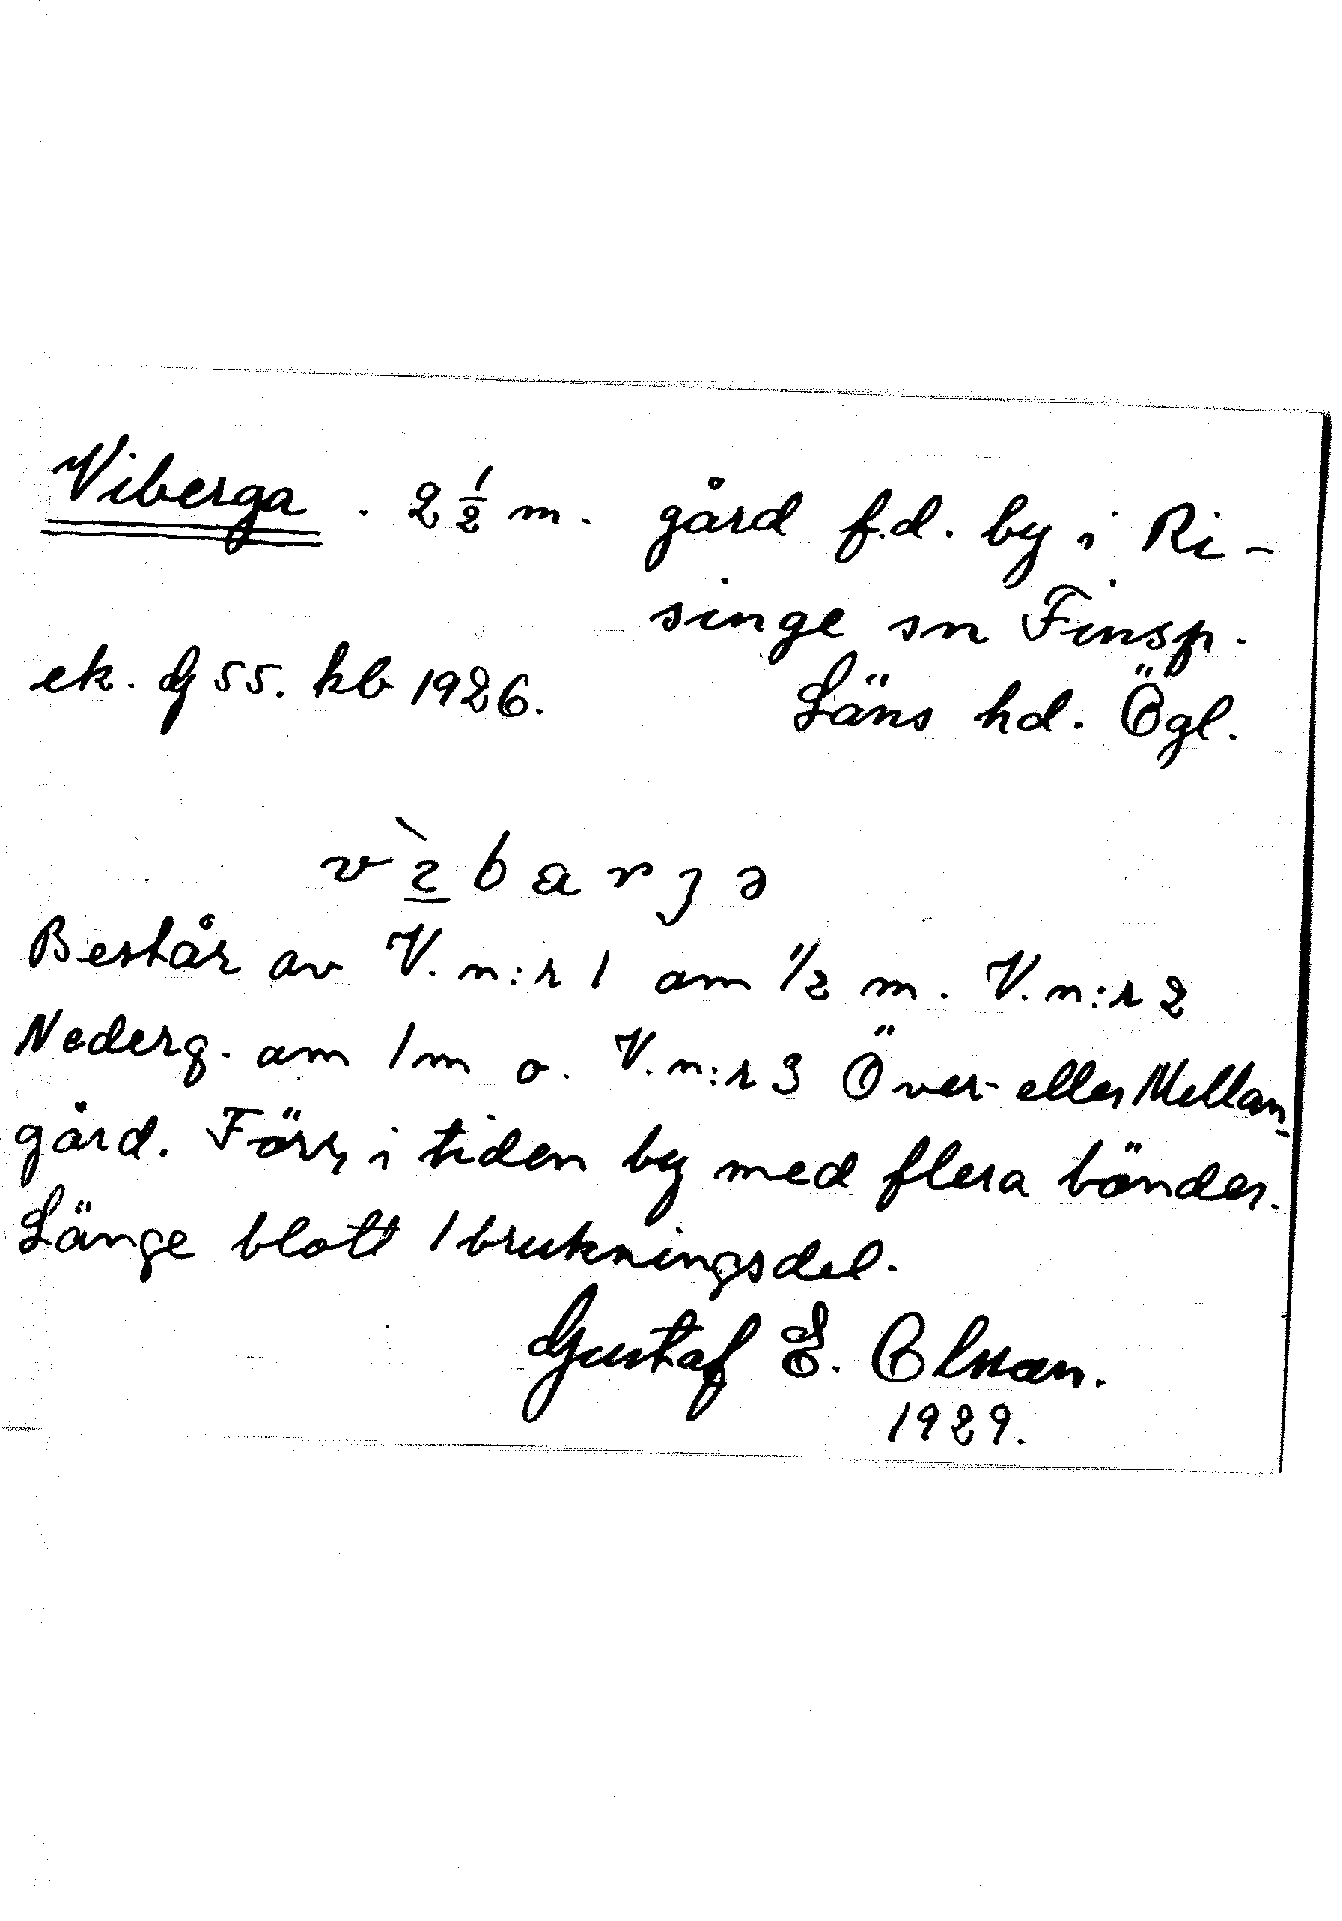 Viberga. 2 1/2 m. gård f.d. by i Ri-
singe sn Finsp.
ek. g 55. kb 1926. Läns hd. Ögl.
Består av V. n:r 1 om 1/2 m. V. n:r 2
Nederg. om 1 m o. V. n:r 3 Över- eller Mellan-
gård. Förr i tiden by med flera bönder.
Länge blott 1 brukningsdel.
Gustaf E. Olsson.
1929.